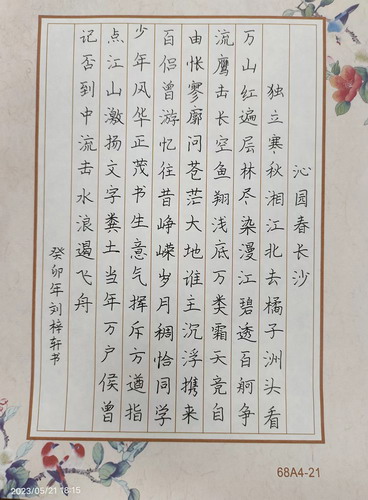 沁园春长沙
独立寒秋湘江北去橘子洲头看
万山红遍层林尽染漫江碧透百舸争
流鹰击长空鱼翔浅底万类霜天竞自
由怅寥廓问苍茫大地谁主沉浮携来
百侣曾游忆往昔峥嵘岁月稠恰同学
少年风华正茂书生意气挥斥方遒指
点江山激扬文字粪土当年万户侯曾
记否到中流击水浪遏飞舟
癸卯年刘梓轩书
68A4-21
2023/05/21 18:15